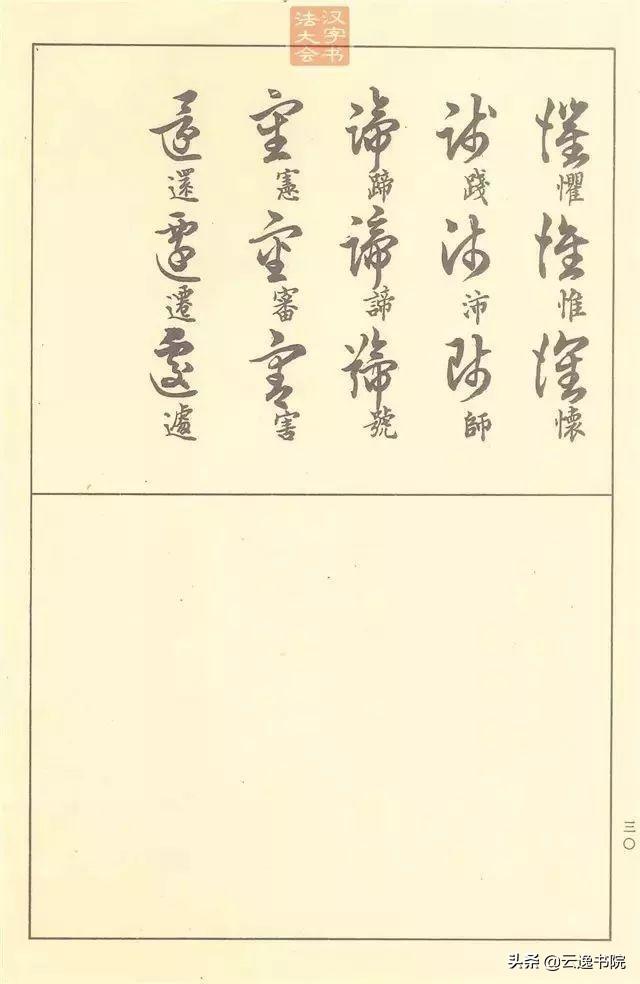 汉字书
法大会
懼惟懷
踐沛師
蹄諦號
憲審害
還遷遽
三〇
头条@云逸书院